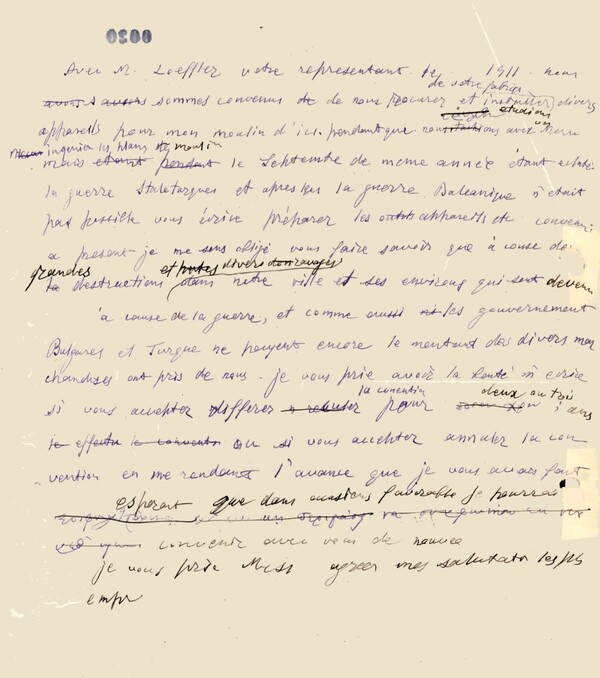 0030
Avec M. Loeffler votre representant le 1911 nous
de votre fabrique
avons sommes convenus de de nous procurer et installer divers
etudions
appareils pour mon moulin d'ici pendant que nous avec
vos
ingenieur les plans du moulin
mais etant pendant le Septembre de meme année étant eclaté
la guerre Italoturque et apres les la guerre Balcanique n'était
pas possible vous écrire préparer les appareils etc convenu
a present je me sens obligé vous faire savoir que à cause de
grandes et divers domages
destructions dans notre ville et ses environs qui sont devenu
à cause de la guerre, et comme aussi les gouvernement
Bulgares et Turque ne payent encore le montant des divers mar
chandises ont pris de nous. je vous prie avoir la bonté m'écrire
la convention deux ou trois
si vous acchter differer pour ans
je effectu le convents ou si vous acchter annuler la con
vention en me rendant l'avance que je vous avais fait
esperant que dans occasions favorable je pourrai
convenir avec vous de nouveau
je vous prie Mess agreer mes salutatio les pls
empr